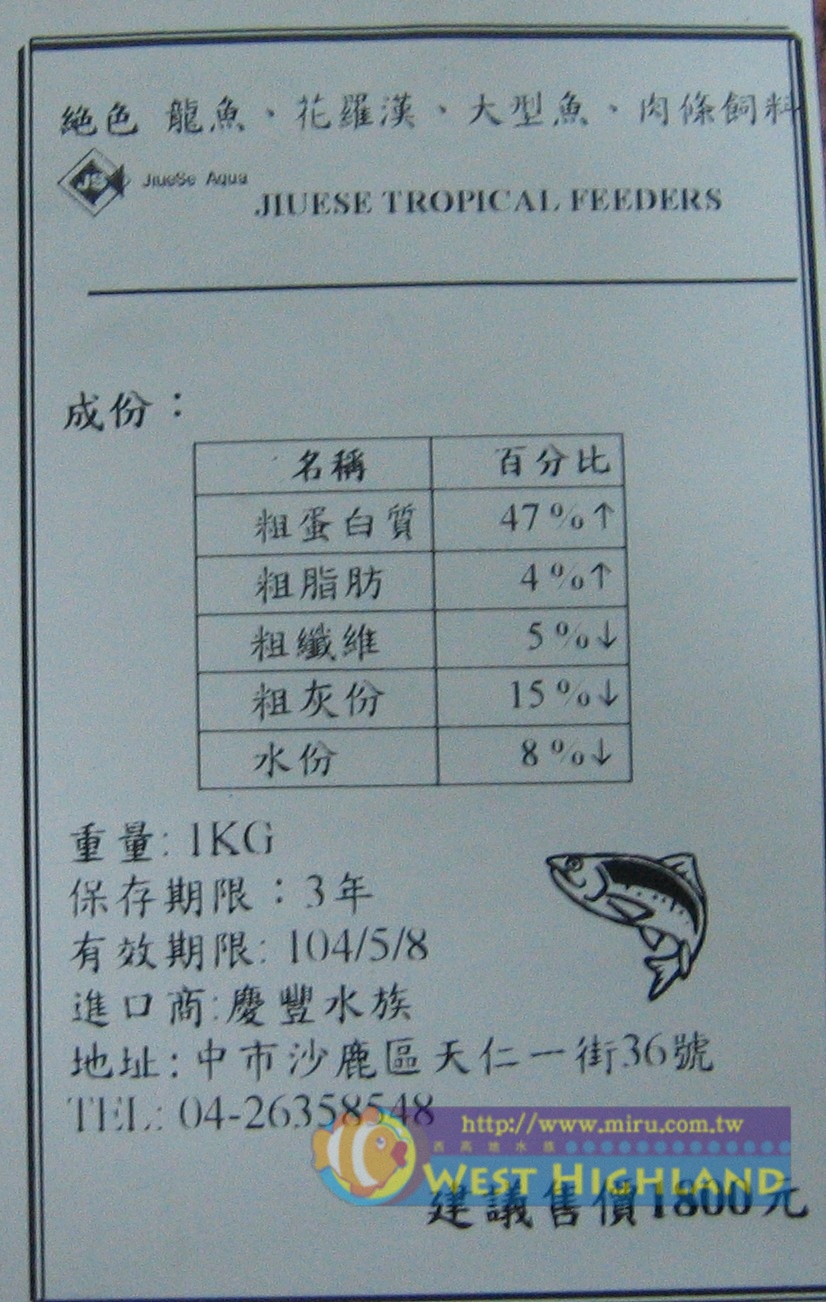 絕色 龍魚、花羅漢、大型魚、肉條飼料
JS JiueSe Aqua
JIUESE TROPICAL FEEDERS
成份：
名稱 百分比
粗蛋白質 47%↑
粗脂肪 4%↑
粗纖維 5%↓
粗灰份 15%↓
水份 8%↓
重量: 1KG
保存期限：3年
有效期限: 104/5/8
進口商:慶豐水族
地址:中市沙鹿區天仁一街36號
TEL: 04-26358548
http://www.miru.com.tw
西高地水族
WEST HIGHLAND
建議售價1800元